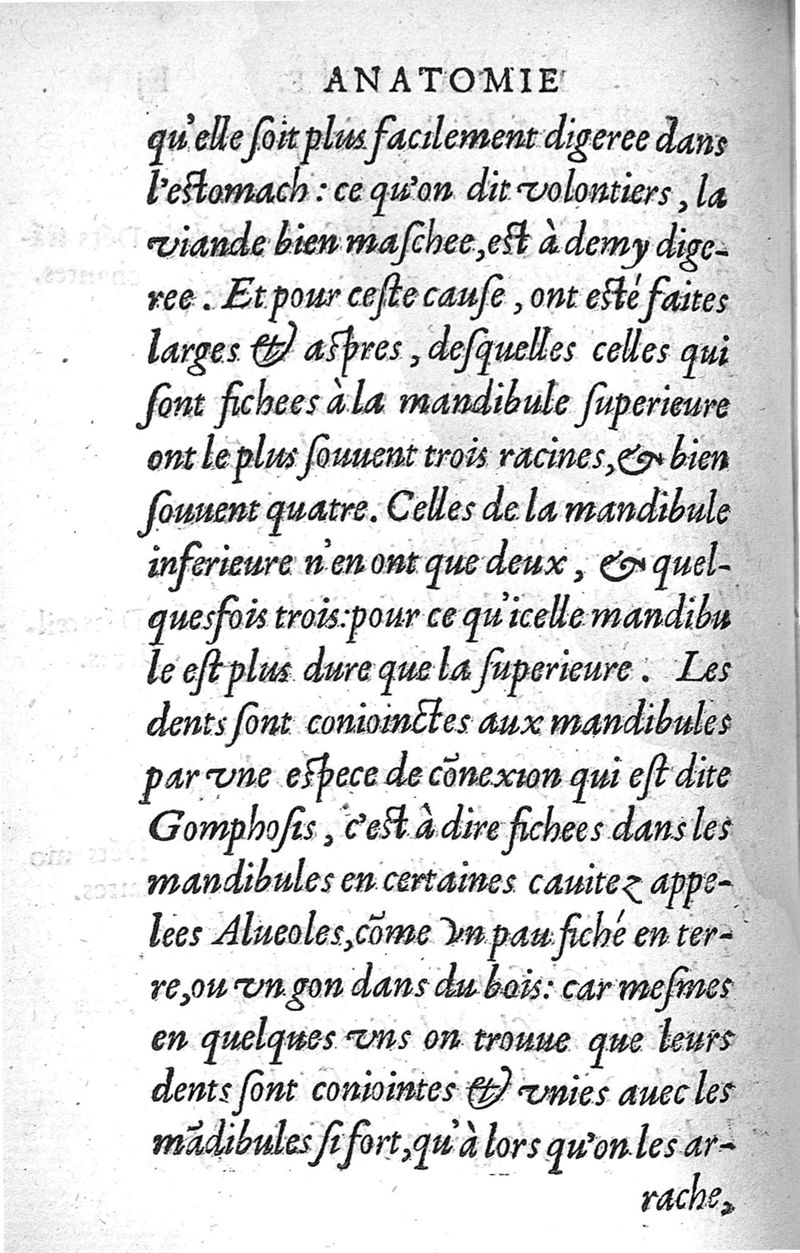 ANATOMIE
qu'elle ſoit plus facilement digeree dans
l'estomach : ce qu'on dit volontiers, la
viande bien maſchee, est à demy dige-
ree. Et pour ceſte cauſe, ont esté faites
larges & aſpres, deſquelles celles qui
ſont fichees à la mandibule ſuperieure
ont le plus ſouuent trois racines, & bien
ſouuent quatre. Celles de la mandibule
inferieure n'en ont que deux, & quel-
quesfois trois: pour ce qu'icelle mandibu
le eſt plus dure que la ſuperieure. Les
dents ſont conioinctes aux mandibules
par vne eſpece de cõnexion qui eſt dite
Gomphoſis, c'est à dire fichees dans les
mandibules en certaines cauitez appe-
lees Alueoles, cõme vn pau fiché en ter-
re, ou vn gon dans du bois: car meſmes
en quelques vns on trouue que leurs
dents ſont coniointes & vnies auec les
mãdibules ſi fort, qu'à lors qu'on les ar-
rache,